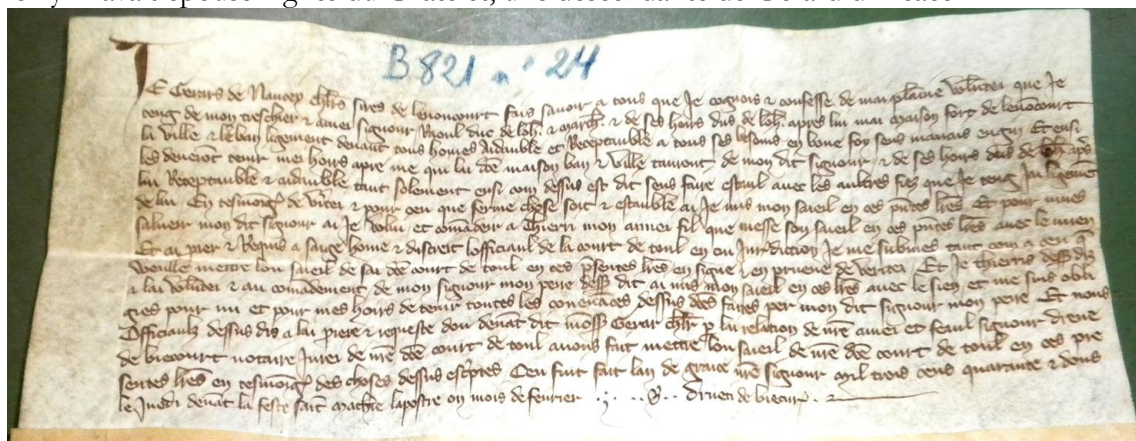 B 821 n° 24
Je Gerars de Nancey chlrs sires de lenoncourt fais savoir a tous que Je cognois & confesse de mai plainne volunteit que Je
teng de mon treschier & amei signour Raoul duc de loh. & march. & de ses hoirs dus de loh. apres lui mai maison fort de lenoncourt
la ville & le ban ligement devant tous homes Aidauble et Receptauble a tous ses besoins en bone foy sens mauais engin Et ensi
les deueront tenir mei hoirs apres me qui la dte maison ban & ville tanront de mon dit signour & de ses hoirs dus de loh. aps
lui Receptauble & aidauble tant solement ensi com dessus est dit sens faire estaul avec les aultres fiez que Je teng Jai ligement
de lui En tesmoing. de veriteit & pour ceu que ferme chose soit & estauble ai Je mis mon saieil en ces pntes lres Et pour mues
salueir mon dit signour ai Je volu et comandeir a Thierri mon ainnei fil que messe son saieil en ces pntes lres avec le mien
Et ai prier & Requis a saige home & discreit lofficiaul de li court de toul en cui Jurisdiction Je me submes tant com a ceu q
vueille mettre lou saieil de sai dte court de toul en ces presentes lres en signe & en prueue de veriteit Et Je Thierris dess. dis
a lai volunteit & au comandement de mon signour mon peire dess. dit ai mis mon saieil en ces lres avec le sien et me suis obli
gies pour mi et pour mes hoirs de tenir toutes les covenances dessus dtes faites per mon dit signour mon peire Et nous
Officiaulz dessus dis a lai priere & requeste dou devant dit monss. Gerar chlr p lai relation de nre amei et feaul signour drewe
de biecourt notaire Jurei de nre dte court de toul avons fait mettre lou saieil de nre dte court de toul en ces pre
sentes lres en tesmoing. des choses dessus escriptes Ceu fuit fait lan de grace nre signour mil trois cens quarante & dous
le Juedi devant la feste saint mathie lapostre ou mois de feurier